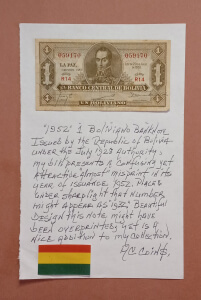 050470
050470
LA PAZ,
SERIE
R14
SERIE
R14
BANCO CENTRAL DE BOLIVIA
UN BOLIVIANO
"1952" 1 BOLIVIANO BANKNOTE
ISSUED BY THE REPUBLIC OF BOLIVIA
UNDER THE JULY 1928 AUTHORITY.
MY BILL PRESENTS A CONFUSING YET
ATTRACTIVE ALMOST MISPRINT IN ITS
YEAR OF ISSUANCE, 1952. PLACED
UNDER SHARP LIGHT THAT NUMBER
MIGHT APPEAR AS "1922," BEAUTIFUL
DESIGN THIS NOTE MIGHT HAVE
BEEN OVERPRINTED, YET IS A
NICE ADDITION TO MY COLLECTION.
COINS.